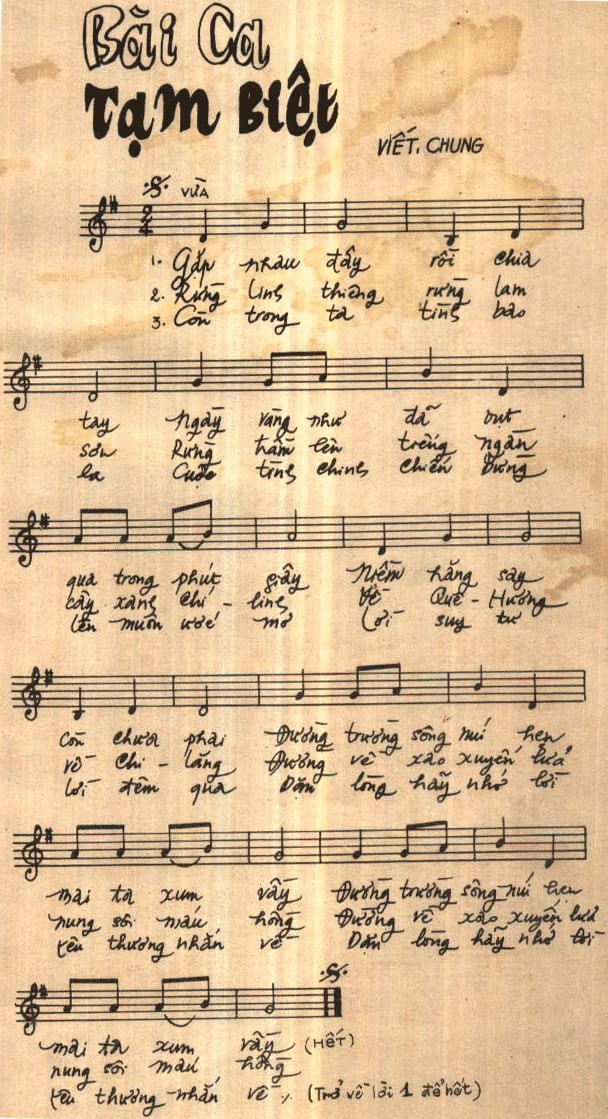 Bài Ca
Tạm Biệt
VIẾT. CHUNG
VỪA
1. Gặp nhau đây rồi chia
2. Rừng linh thiêng rừng lam
3. Còn trong ta tình bao
tay Ngày vàng như đã vụt
sơn Rừng trầm lên tiếng ngàn
la Cuộc tình chinh chiến Dừng
qua trong phút giây Niềm hăng say
cây xanh Chí - linh Về Quê - Hương
lên muôn ước mơ Lời suy tư
còn chưa phai Đường trường sông núi hẹn
về Chi - lăng Đường về xao xuyến lửa
lời đêm qua Dặn lòng hãy nhớ lời
mai ta xum vầy Đường trường sông núi hẹn
nung sôi máu hồng Đường về xao xuyến lửa
yêu thương nhắn về Dặn lòng hãy nhớ lời
mai ta xum vầy (HẾT)
nung sôi máu hồng
yêu thương nhắn về (Trở về lời 1 để hết)